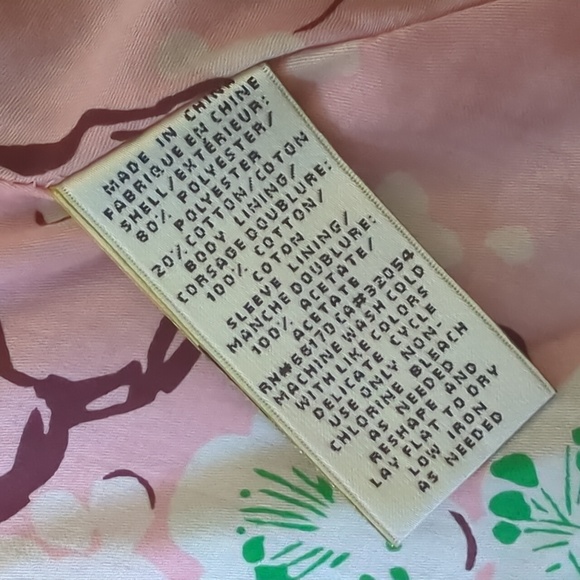 MADE IN CHINA
FABRIQUE EN CHINE
SHELL/EXTÉRIEUR:
80% POLYESTER/
POLYESTER
20% COTTON/COTON
BODY LINING/
CORSAGE DOUBLURE:
100% COTTON/
COTON
SLEEVE LINING/
MANCHE DOUBLURE:
100% ACETATE/
ACETATE
RN#66170 CA#32054
MACHINE WASH COLD
WITH LIKE COLORS
DELICATE CYCLE
USE ONLY NON-
CHLORINE BLEACH
AS NEEDED
RESHAPE AND
LAY FLAT TO DRY
LOW IRON
AS NEEDED